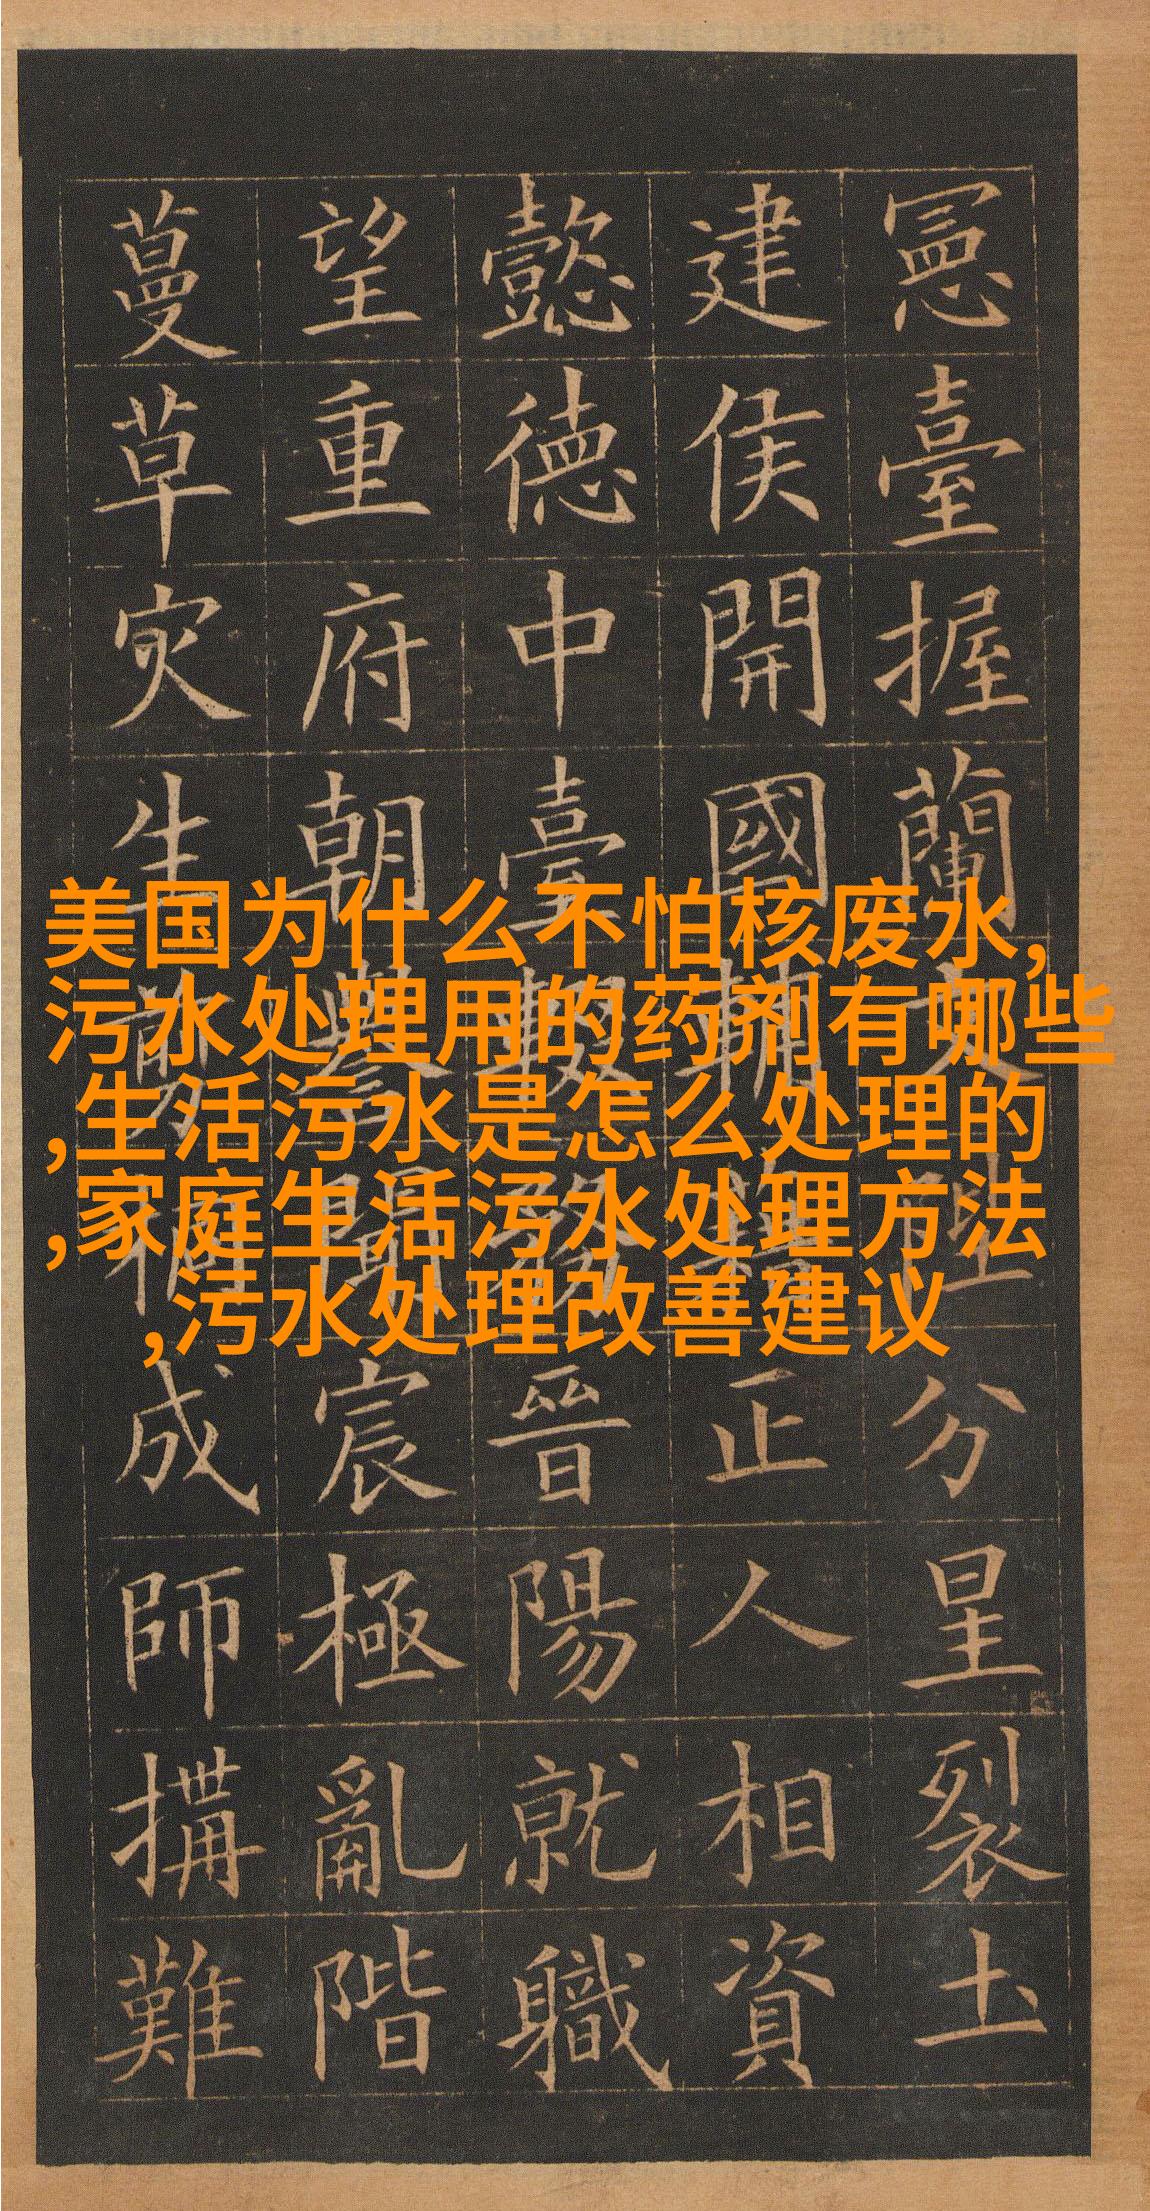 憲臺握蘭陛分星裂土
建侯開國輔正人相資
懿德中臺務晉陽就職
望重府朝譽聞宸極亂階
蔓草災生禍成師搆難
美国为什么不怕核废水,
污水处理用的药剂有哪些
,生活污水是怎么处理的
,家庭生活污水处理方法
,污水处理改善建议